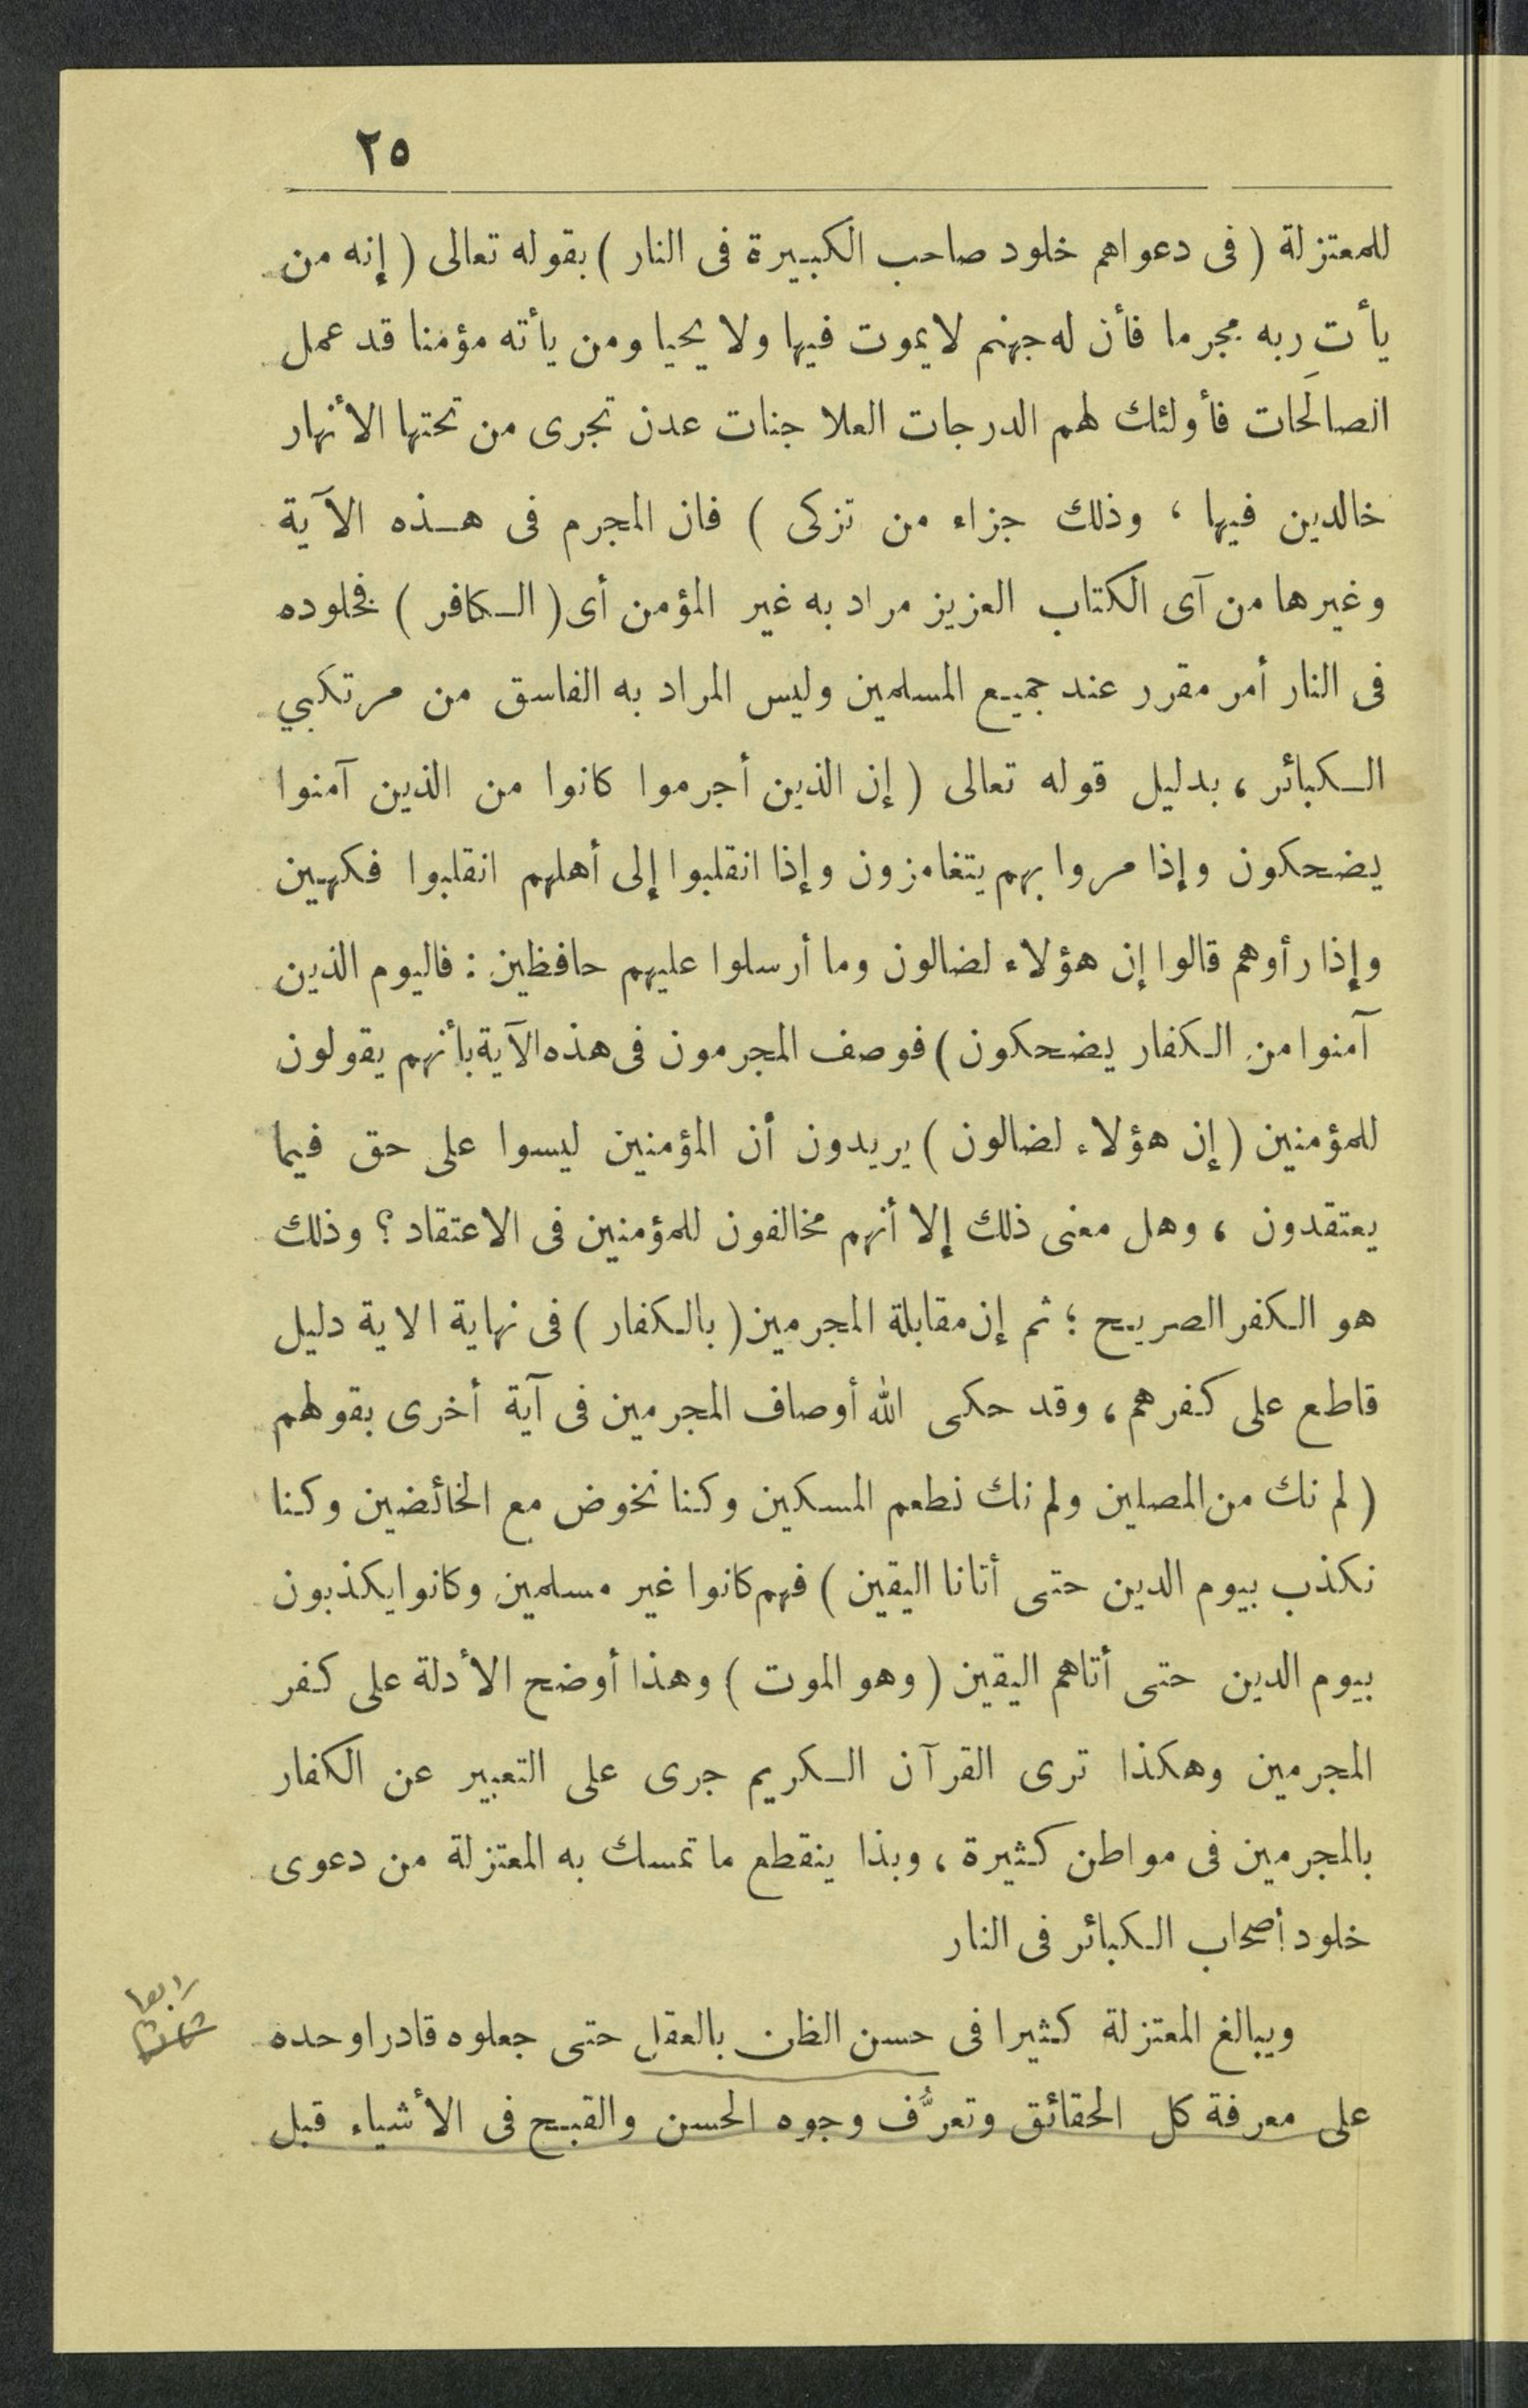 ٢٥
للمعتزلة ( فى دعواهم خلود صاحب الكبيرة فى النار ) بقوله تعالى ( إنه من
يأت ربه مجرما فأن له جهنم لايموت فيها ولا يحيا ومن يأته مؤمنا قد عمل
الصالحات فأولئك لهم الدرجات العلا جنات عدن تجرى من تحتها الأنهار
خالدين فيها ، وذلك جزاء من تزكى ) فان المجرم فى هذه الآية
وغيرها من آى الكتاب العزيز مراد به غير المؤمن أى ( الكافر ) فخلوده
فى النار أمر مقرر عند جميع المسلمين وليس المراد به الفاسق من مرتكبي
الكبائر ، بدليل قوله تعالى ( إن الذين أجرموا كانوا من الذين آمنوا
يضحكون وإذا مروا بهم يتغامزون وإذا انقلبوا إلى أهلهم انقلبوا فكهين
وإذا رأوهم قالوا إن هؤلاء لضالون وما أرسلوا عليهم حافظين : فاليوم الذين
آمنوا من الكفار يضحكون ) فوصف المجرمون فى هذه الآية بأنهم يقولون
للمؤمنين ( إن هؤلاء لضالون ) يريدون أن المؤمنين ليسوا على حق فيما
يعتقدون ، وهل معنى ذلك إلا أنهم مخالفون للمؤمنين فى الاعتقاد ؟ وذلك
هو الكفر الصريح ؛ ثم إن مقابلة المجرمين ( بالكفار ) فى نهاية الاية دليل
قاطع على كفرهم ، وقد حكى الله أوصاف المجرمين فى آية أخرى بقولهم
( لم نك من المصلين ولم نك نطعم المسكين وكنا نخوض مع الخائضين وكنا
نكذب بيوم الدين حتى أتانا اليقين ) فهم كانوا غير مسلمين وكانوا يكذبون
بيوم الدين حتى أتاهم اليقين ( وهو الموت ) وهذا أوضح الأدلة على كفر
المجرمين وهكذا ترى القرآن الكريم جرى على التعبير عن الكفار
بالمجرمين فى مواطن كثيرة ، وبذا ينقطع ما تمسك به المعتزلة من دعوى
خلود أصحاب الكبائر فى النار
رابعا
ويبالغ المعتزلة كثيرا فى حسن الظن بالعقل حتى جعلوه قادرا وحده
على معرفة كل الحقائق وتعرُّف وجوه الحسن والقبح فى الأشياء قبل